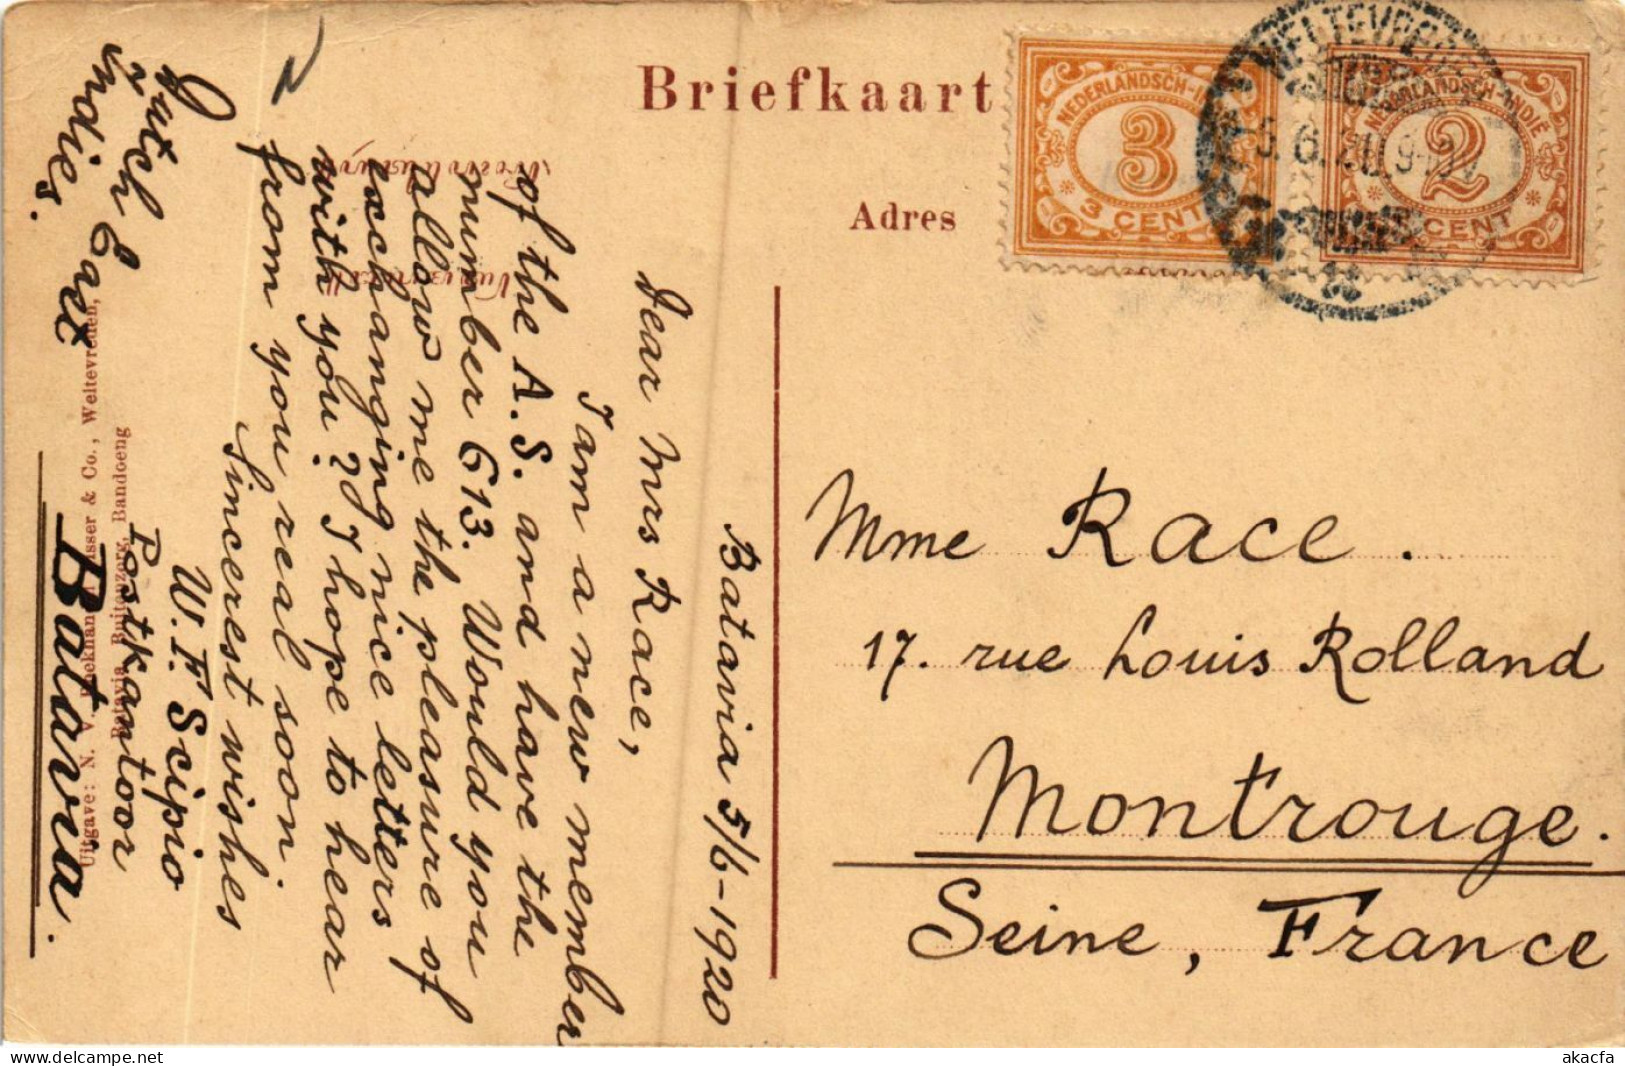 Briefkaart
Adres
NEDERLANDSCH-INDIË
3
3 CENT
NEDERLANDSCH-INDIË
2
CENT
WELTEVREDEN
5.6.20.9-10
Batavia 5/6-1920
Dear Mrs Race,
I am a new member
of the A.S. and have the
number 613. Would you
allow me the pleasure of
exchanging nice letters
with you? I hope to hear
from you real soon.
Sincerest wishes
W.F. Scipio
Postkantoor
Batavia.
Dutch East
Indies.
Mme Race.
17. rue Louis Rolland
Montrouge.
Seine, France
Uitgave: N. V. Boekhan Visser & Co., Weltevreden,
Batavia, Buitenzorg, Bandoeng
akacfa